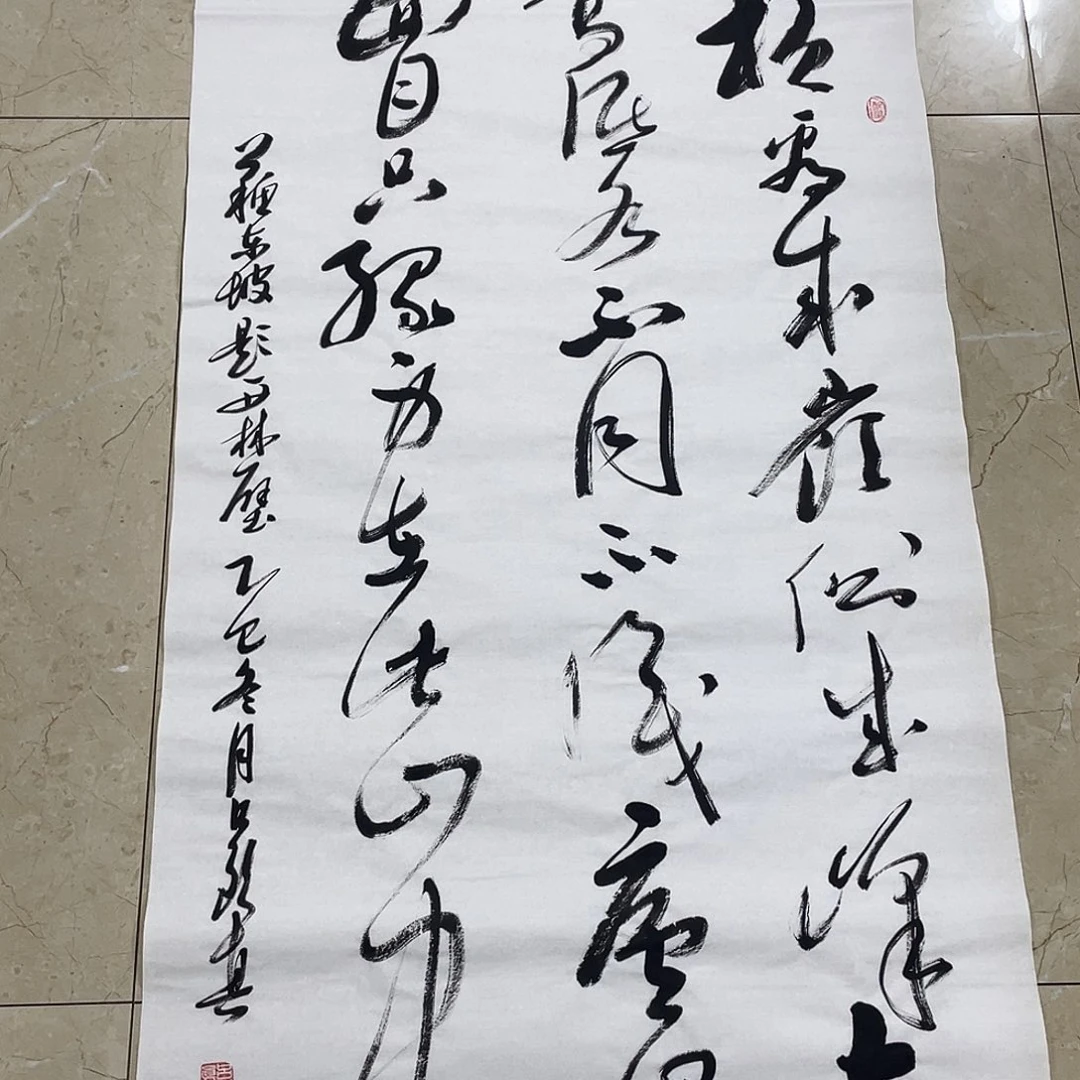 横看成嶺側成峰
高低各不同不識廬
面目只緣身在此山中
蘇東坡題西林壁 乙巳冬月